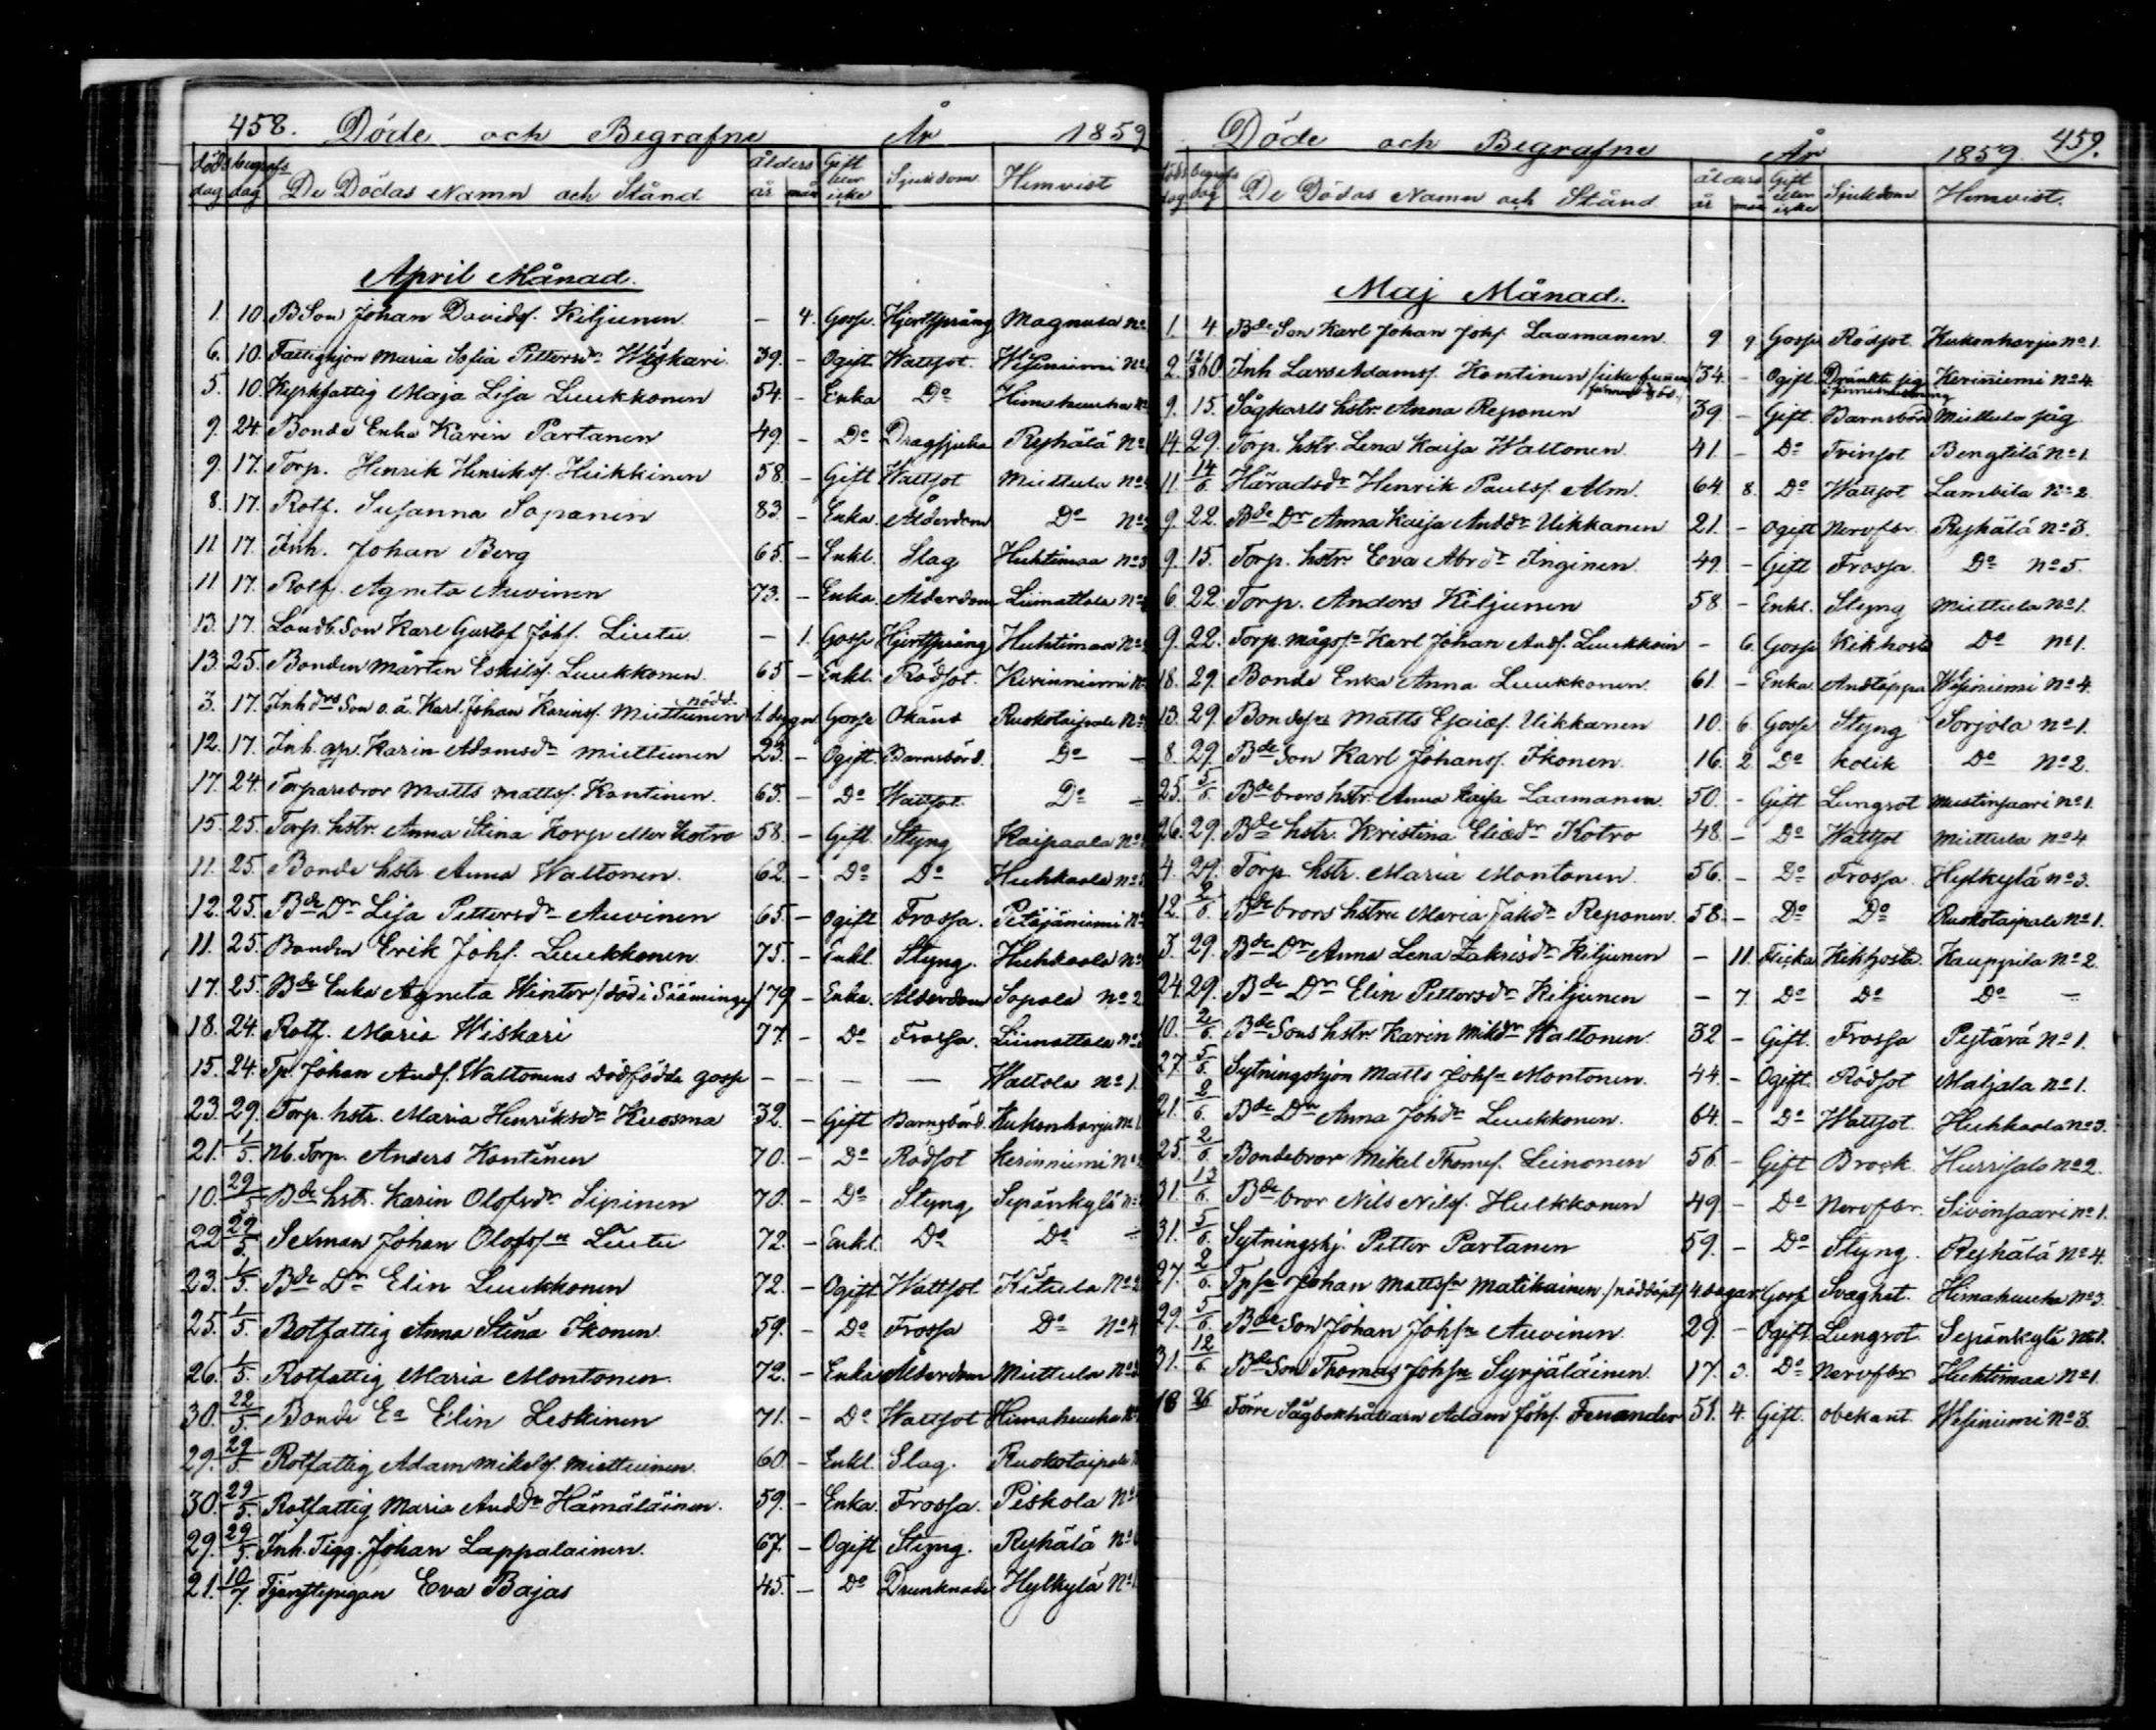 458. Döde och Begrafne År 1859
döds dag begrafs dag De Dödas Namn och Stånd ålders år mån Gift eller icke Sjukdom Hemvist
April Månad.
1. 10. BSon Johan Davidsf. Kiljunen — 4. Gosse. Hjertsprång Magnula No
6. 10. Fattighjon Maria Sofia Pettersdr Wiskari. 39. – Ogift Wattsot. Wesiniemi No
5. 10. Kyrkfattig Maja Lisa Luukkonen 54. – Enka Do Himahuuha No
9. 24. Bonde Enka Karin Partanen 49. – Do Dragsjuka Ryhälä No
9. 17. Torp. Henrik Henriksf. Heikkinen 58. – Gift Wattsot Miettula No
8. 17. Rotf. Susanna Sopanen 83. – Enka. Ålderdom Do No
11 17. Inh. Johan Berg 65. – Enkl. Slag Huhtimaa No 3
11 17. Rotf. Agneta Auvinen 73. – Enka. Ålderdom Liimattala No
13. 17. Landb. Son Karl Gustaf Johsf. Liutu — 1. Gosse Hjertsprång Huhtimaa No
13. 25. Bonden Mårten Eskilsf. Luukkonen. 65 – Enkl. Rödsot. Kerinniemi No
3. 17. Inhdrs Son o.ä. Karl Johan Karinsf. Miettunen nödd. 1 dygn Gosse Okänd Ruokotaipale No
12. 17. Inh. gp. Karin Adamsdr Miettunen 23. – Ogift. Barnsbörd. Do —
17. 24. Torparebror Matts Mattsf. Kontinen. 63. – Do Wattsot. Do —
15. 25. Torp. hstr. Anna Stina Korp eller Kotro 58. – Gift. Styng Kaipaala No
11. 25. Bonde hstr. Anna Waltonen. 62. – Do Do Huhkaala No
12. 25. Bde Dr Lisa Pettersdr Auvinen 65. – Ogift Frossa. Petäjäniemi No
11. 25. Bonden Erik Johsf. Luukkonen. 75. – Enkl. Styng. Huhkaala No
17. 25. Bde Enka Agneta Winter /död i Sääminge/ 79 – Enka. Ålderdom Sopala No 2
18. 24. Rotf. Maria Wiskari 77. – Do Frossa. Liimattala No
15. 24. Tp. Johan Andsf. Waltonens Dödfödda gosse — — — — Waltola No 1.
23. 29. Torp. hstr. Maria Henriksdr Kuosma 32. – Gift Barnsbörd. Kukonharju No 1.
21. 1/5. Nb. Torp. Anders Kontinen 70. – Do Rödsot Kerinniemi No
10. 29/5 Bde hstr. Karin Olofsdr Sipinen 70. – Do Styng Sepänkylä No
22 29/5. Sexman Johan Olofssn Liutu 72. – Enkl. Do Do —
23. 1/5. Bde Dr Elin Luukkonen 72. – Ogift Wattsot Kitula No 2
25. 1/5. Rotfattig Anna Stina Ikonen. 59. – Do Frossa Do No 4
26. 1/5. Rotfattig Maria Montonen. 72. – Enka Ålderdom Miettula No
30. 22/5. Bonde Ea Elin Leskinen 71. – Do Wattsot Himahuuha No
29. 29/5. Rotfattig Adam Mikelsf. Miettunen. 60. – Enkl. Slag. Ruokotaipale
30. 29/5. Rotfattig Maria Anddr Hämäläinen. 59. – Enka. Frossa. Piskola No
29. 29/5. Inh. Tigg. Johan Lappalainen. 67. – Ogift Styng. Ryhälä No
21. 10/7. Tjenstepigan Eva Bajas 45. – Do Drunknade Hylkylä No
Döde och Begrafne År 1859. 459.
döds dag begrafs dag De Dödas Namn och Stånd ålders år mån Gift eller icke Sjukdom Hemvist.
Maj Månad.
1. 4 Bde Son Karl Johan Johsf. Laamanen. 9 9. Gosse Rödsot. Kukonharju No 1.
2. 60. Inh Lars Adamsf. Kontinen /icke funnen 34. – Ogift. Dränkte sig Kerinniemi No 4.
9. 15. Sågkarls hstr. Anna Reponen 39 – Gift. Barnsbörd Miettula såg
14. 29. Torp. hstr. Lena Kaisa Waltonen. 41. – Do Tvinsot Bengtilä No 1.
11. 14/6. Häradsdr Henrik Paulsf. Alm. 64. 8. Do Wattsot Lambila No 2.
9. 22. Bde Dr Anna Kaisa Anddr Uikkanen 21. – Ogift Nervfbr. Ryhälä No 3.
9. 15. Torp. hstr. Eva Abrdr Inginen. 49. – Gift Frossa. Do No 5.
6. 22. Torp. Anders Kiljunen 58 – Enkl. Styng Miettula No 1.
9. 22. Torp. mågsn Karl Johan Andsf. Luukkoin – 6. Gosse Kikhosta Do No 1.
18. 29. Bonde Enka Anna Luukkonen. 61. – Enka. Andtäppa Wesiniemi No 4.
13. 29. Bondesn Matts Esaiæsf. Uikkanen 10. 6 Gosse Styng Sorjola No 1.
8 29. Bde Son Karl Johansf. Ikonen. 16. 2. Do Kolik Do No 2.
25. 5/6. Bde brors hstr. Anna Kaisa Laamanen. 50. – Gift Lungsot Mustinsaari No 1.
26. 29. Bde hstr. Kristina Eliædr Kotro 48. – Do Wattsot Miettula No 4
4. 29. Torp hstr. Maria Montonen. 56. – Do Frossa. Hylkylä No 3.
12. 2/6. Bde brors hstru Maria Jakdr Reponen. 58. – Do Do Ruokotaipale No 1.
3. 29. Bde Dr Anna Lena Zakrisdr Kiljunen – 11. Flicka Kikhosta. Kauppila No 2.
24. 29. Bde Dr Elin Pettersdr Kiljunen – 7. Do Do Do —
10. 2/6. Bde Sons hstr. Karin Mikdr Waltonen. 32 – Gift. Frossa Pejtärä No 1.
27. 5/6. Sytningshjon Matts Johsn Montonen. 44. – Ogift. Rödsot Matjala No 1.
21. 2/6. Bde Dr Anna Johdr Luukkonen. 64. – Do Wattsot. Huhkaala No 3.
25. 2/6. Bondebror Mikel Thomsf. Leinonen 56. – Gift Brock. Hurrisalo No 2.
31. 13/6. Bde bror Nils Nilsf. Hulkkonen 49 – Do Nervfbr. Sivinsaari No 1.
31. 5/6. Sytningshj. Petter Partanen 59. – Do Styng. Ryhälä No 4.
27. 2/6. Tpsn Johan Mattssn Matikainen. /nöddöpt/ 4. dagar Gosse Svaghet. Himahuuha No 3.
29. 5/6. Bde Son Johan Johsn Auvinen. 29. – Ogift. Lungsot Sepänkylä No 1.
31. 12/6. Bde Son Thomas Johsn Syrjäläinen. 17. 3. Do Nervfbr Huhtimaa No 1.
18 26 Förre Sågbokhållarn Adam Johsf. Fenander 51. 4. Gift. obekant. Wesiniemi No 3.